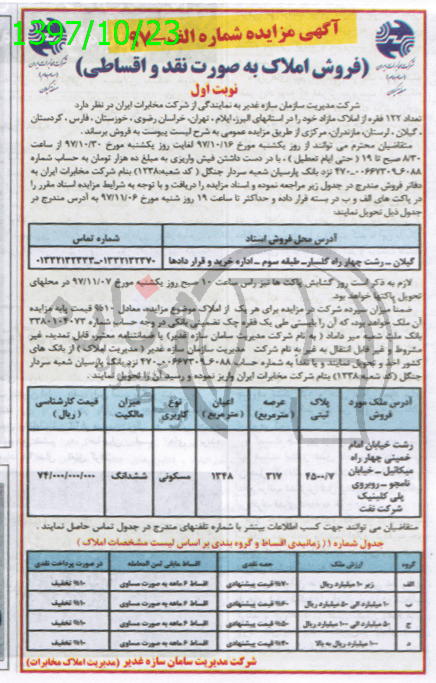 1397/10/23
آگهی مزایده شماره الف ـ ۹۷
(فروش املاک به صورت نقد و اقساطی)
نوبت اول
شرکت مدیریت سامان سازه غدیر به نمایندگی از شرکت مخابرات ایران در نظر دارد
تعداد ۱۲۲ فقره از املاک مازاد خود را در استانهای البرز، ایلام ، تهران، خراسان رضوی ، خوزستان ، فارس ، کردستان
، گیلان ، لرستان، مازندران، مرکزی از طریق مزایده عمومی به شرح لیست پیوست به فروش برساند .
متقاضیان محترم می توانند از روز یکشنبه مورخ ۹۷/۱۰/۱۶ لغایت روز یکشنبه مورخ ۹۷/۱۰/۳۰ از ساعت
۸/۳۰ صبح تا ۱۹ ( حتی ایام تعطیل ) ، با در دست داشتن فیش واریزی به مبلغ ده هزار تومان به حساب شماره
نزد بانک پارسیان شعبه سردار جنگل ( کد شعبه:۱۲۳۸) بنام شرکت مخابرات ایران به
دفاتر فروش مندرج در جدول زیر مراجعه نموده و اسناد مزایده را دریافت و با توجه به شرایط مزایده اسناد مقرر را
در پاکت های الف و ب در بسته قرار داده و حداکثر تا ساعت ۱۹ روز شنبه مورخ ۹۷/۱۱/۰۶ به آدرس مندرج در
جدول ذیل تحویل نمایند:
آدرس محل فروش اسناد شماره تماس
گیلان ـ رشت چهار راه گلسار ـ طبقه سوم ـ اداره خرید و قرار دادها
لازم به ذکر است روز گشایش پاکت ها نیز راس ساعت ۱۰ صبح روز یکشنبه مورخ ۹۷/۱۱/۰۷ در محلهای
تحویل پاکتها خواهد بود.
ضمنا میزان سپرده شرکت در مزایده برای هر یک از املاک موضوع مزایده، معادل ۱۰٪ قیمت پایه مزایده
آن ملک خواهد بود، که آن را بایستی طی یک فقره چک تضمینی بانکی در وجه حساب شماره
بانک ملت شعبه میر داماد ( به نام شرکت مدیریت سامان سازه غدیر) یا ضمانتنامه معتبر، قابل تمدید، غیر
مشروط و غیر قابل انتقال به غیر به نام شرکت مدیریت سامان سازه غدیر ( مدیریت املاک ) از بانک های
کشور اخذ و تحویل نمایند و یا نقدا به شماره حساب نزد بانک پارسیان شعبه سردار
جنگل (کد شعبه ۱۲۳۸) بنام شرکت مخابرات ایران واریز نموده و رسید آن را تحویل نمایند .
آدرس ملک مورد فروش پلاک ثبتی عرصه (مترمربع) اعیان (مترمربع) نوع کاربری میزان مالکیت قیمت کارشناسی (ریال)
رشت خیابان امام
خمینی چهار راه
میکائیل ـ خیابان
نامجو ـ روبروی
پلی کلینیک
شرکت نفت
۴۵۰۰/۷ ۳۱۷ ۱۳۴۸ مسکونی ششدانگ ۷۴/۰۰۰/۰۰۰/۰۰۰
متقاضیان می توانند جهت کسب اطلاعات بیشتر با شماره تلفنهای مندرج در جدول تماس حاصل نمایند .
جدول شماره ۱( زمانبندی اقساط و گروه بندی بر اساس لیست مشخصات املاک )
گروه ارزش ملک حصه نقدی اقساط مابقی ثمن المعامله در صورت پرداخت نقدی
الف زیر ۱۰ میلیارد ریال ۷۰٪ قیمت پیشنهادی اقساط ۶ ماهه به صورت مساوی ۱۰٪ تخفیف
ب ۱۰ میلیارد الی ۵۰ میلیارد ریال ۶۰٪ قیمت پیشنهادی اقساط ۶ ماهه به صورت مساوی ۱۰٪ تخفیف
ج ۵۰ میلیارد الی ۱۰۰ میلیارد ریال ۵۰٪ قیمت پیشنهادی اقساط ۶ ماهه به صورت مساوی ۱۰٪ تخفیف
د ۱۰۰ میلیارد ریال به بالا ۴۰٪ قیمت پیشنهادی اقساط ۶ ماهه به صورت مساوی ۱۰٪ تخفیف
شرکت مدیریت سامان سازه غدیر (مدیریت املاک مخابرات)